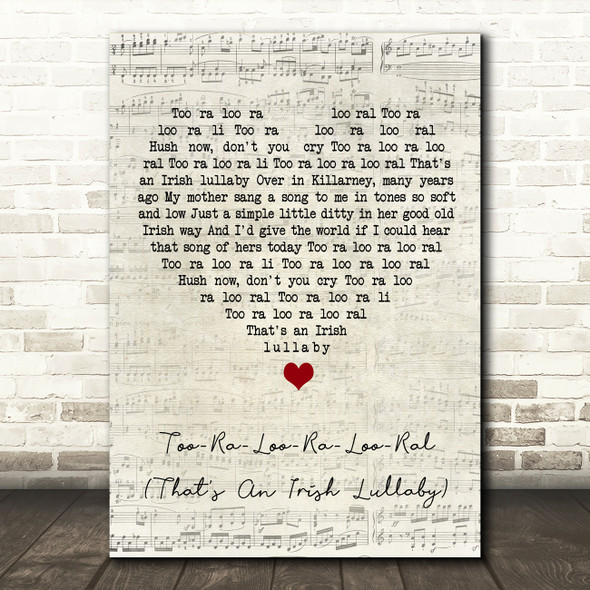 Too ra loo ra loo ral Too ra
loo ra li Too ra loo ra loo ral
Hush now, don't you cry Too ra loo ra loo
ral Too ra loo ra li Too ra loo ra loo ral That's
an Irish lullaby Over in Killarney, many years
ago My mother sang a song to me in tones so soft
and low Just a simple little ditty in her good old
Irish way And I'd give the world if I could hear
that song of hers today Too ra loo ra loo ral
Too ra loo ra li Too ra loo ra loo ral
Hush now, don't you cry Too ra loo
ra loo ral Too ra loo ra li
Too ra loo ra loo ral
That's an Irish
lullaby
Too-Ra-Loo-Ra-Loo-Ral
(That's An Irish Lullaby)